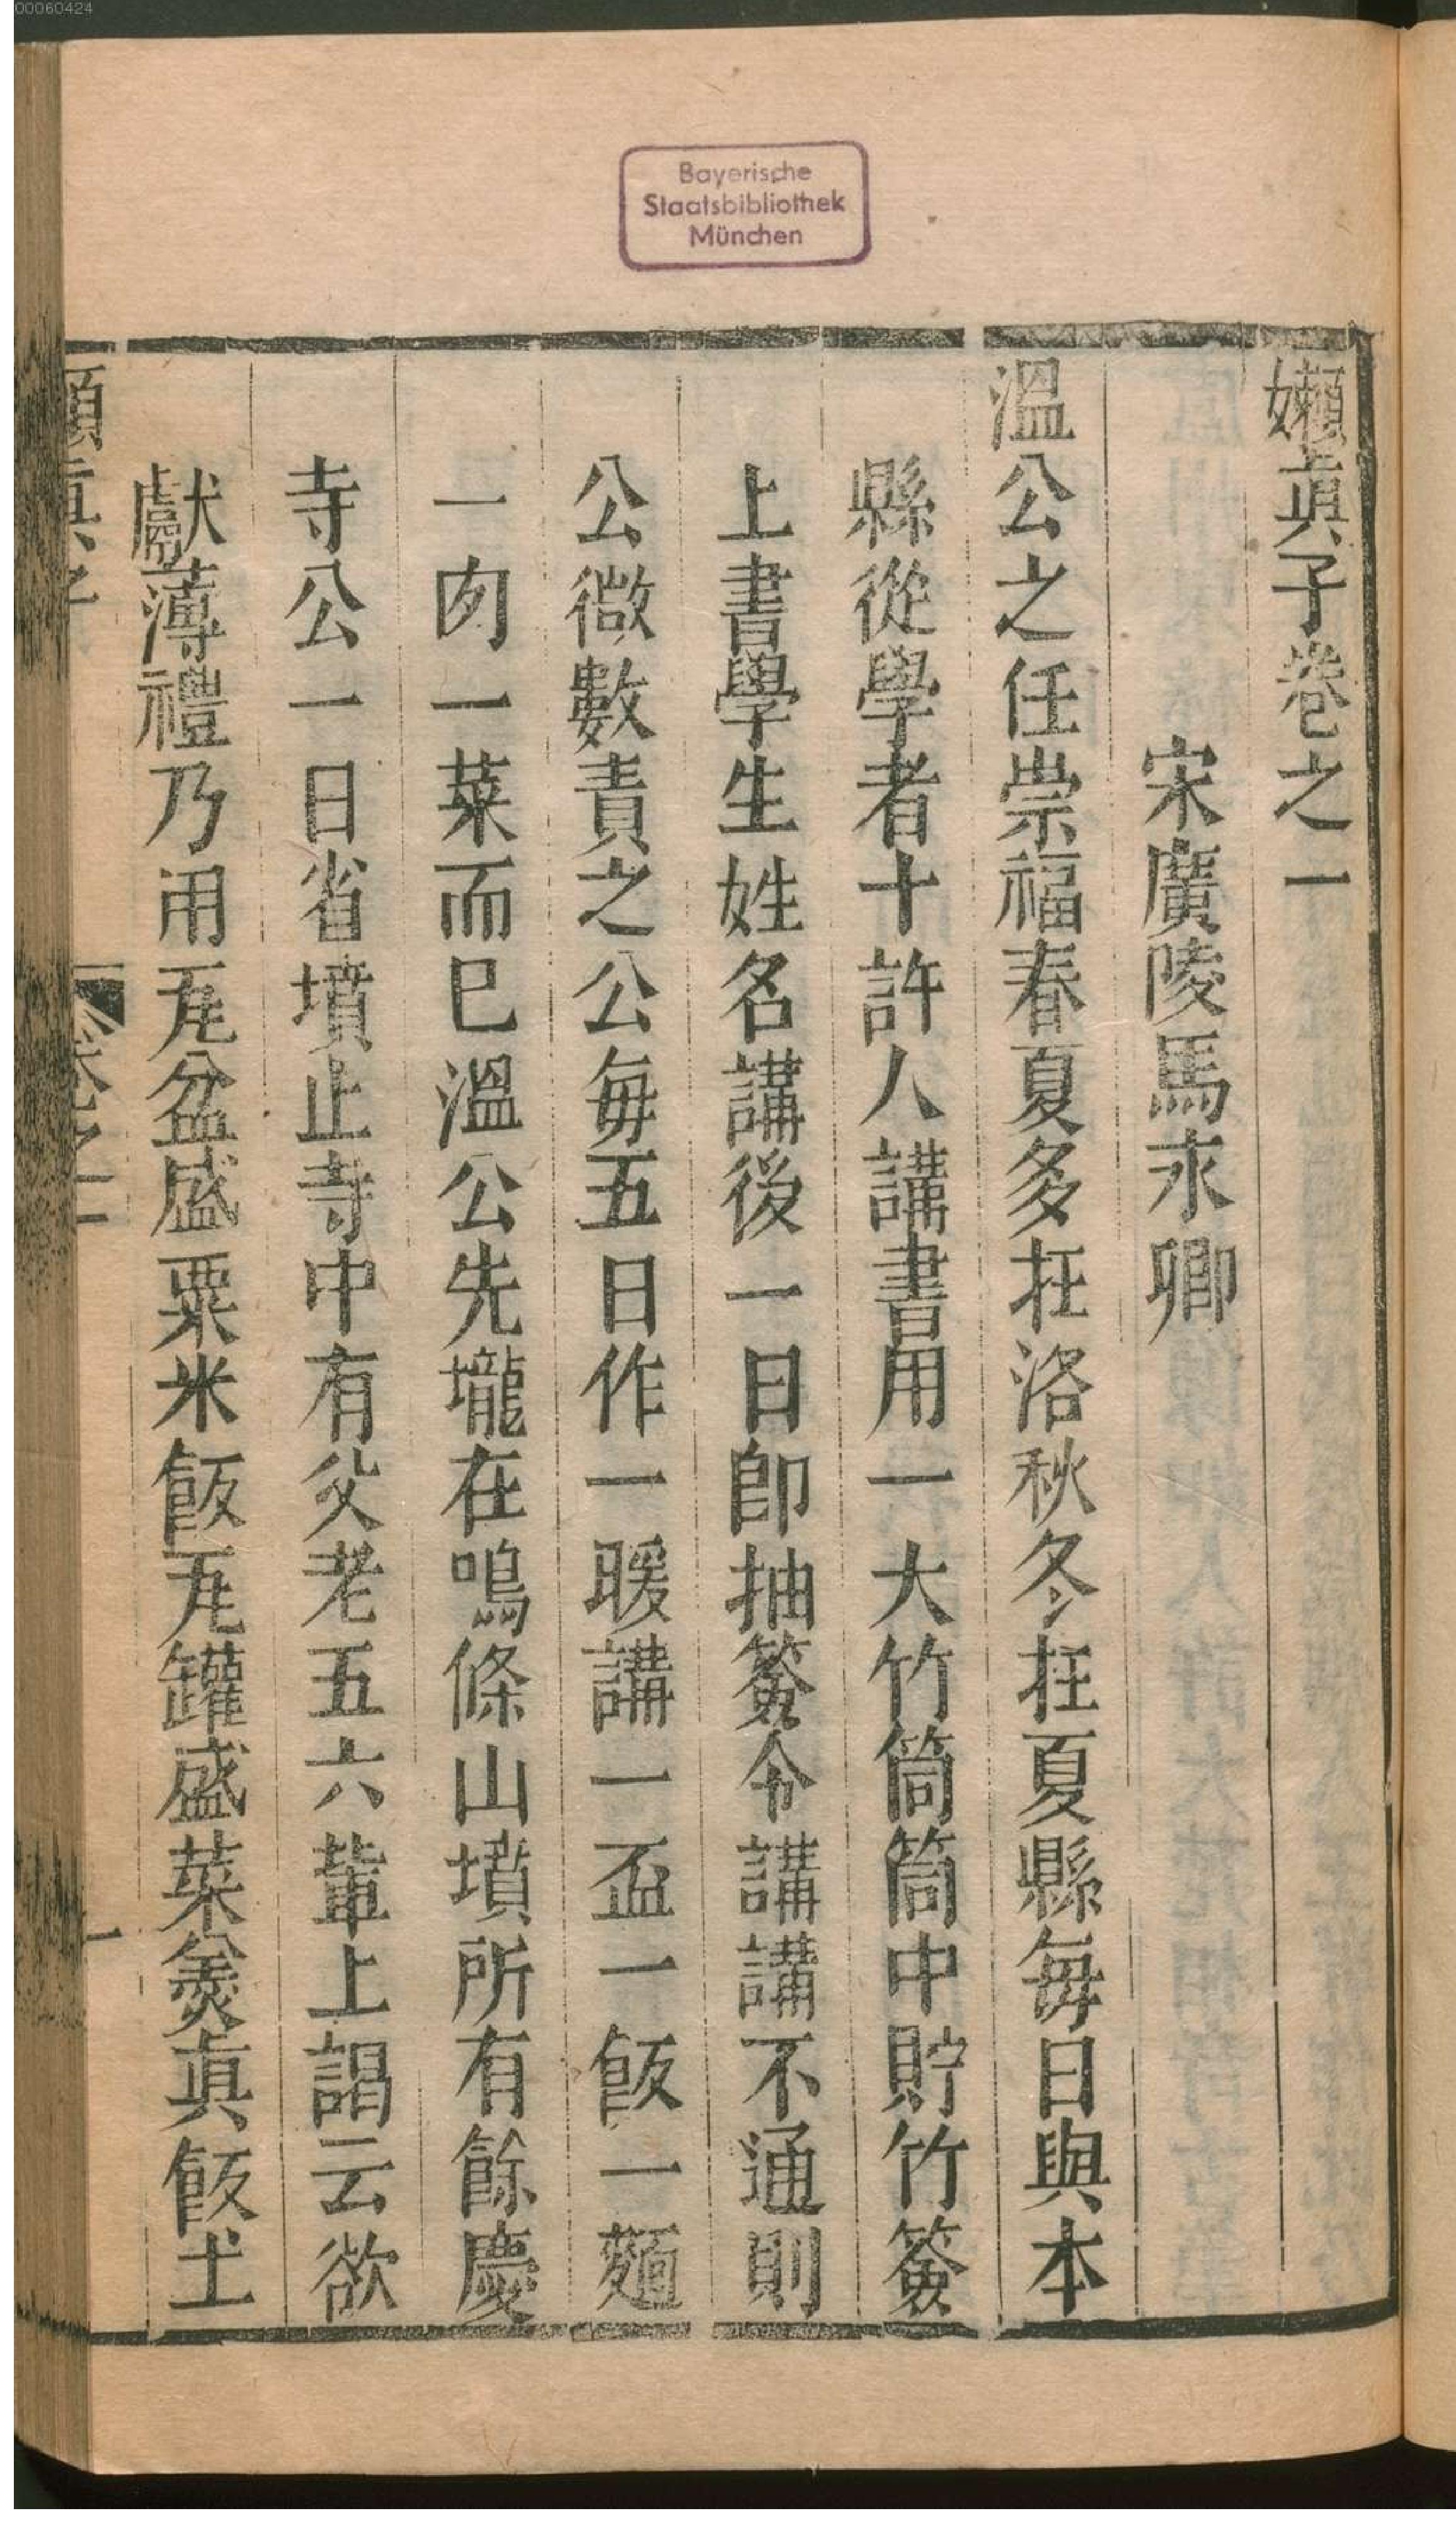 00060424
Bayerische
Staatsbibliothek
München
嬾眞子卷之一
宋廣陵馬永卿
溫公之任崇福春夏多在洛秋冬在夏縣每日與本
縣從學者十許人講書用一大竹筒筒中貯竹簽
上書學生姓名講後一日卽抽簽令講講不通則
公微數責之公每五日作一暖講一盃一飯一麵
一肉一菜而巳溫公先壠在鳴條山墳所有餘慶
寺公一日省墳止寺中有父老五六輩上謁云欲
獻薄禮乃用瓦盆盛粟米飯瓦罐盛菜羹眞飯土
嬾眞子
卷之一
一